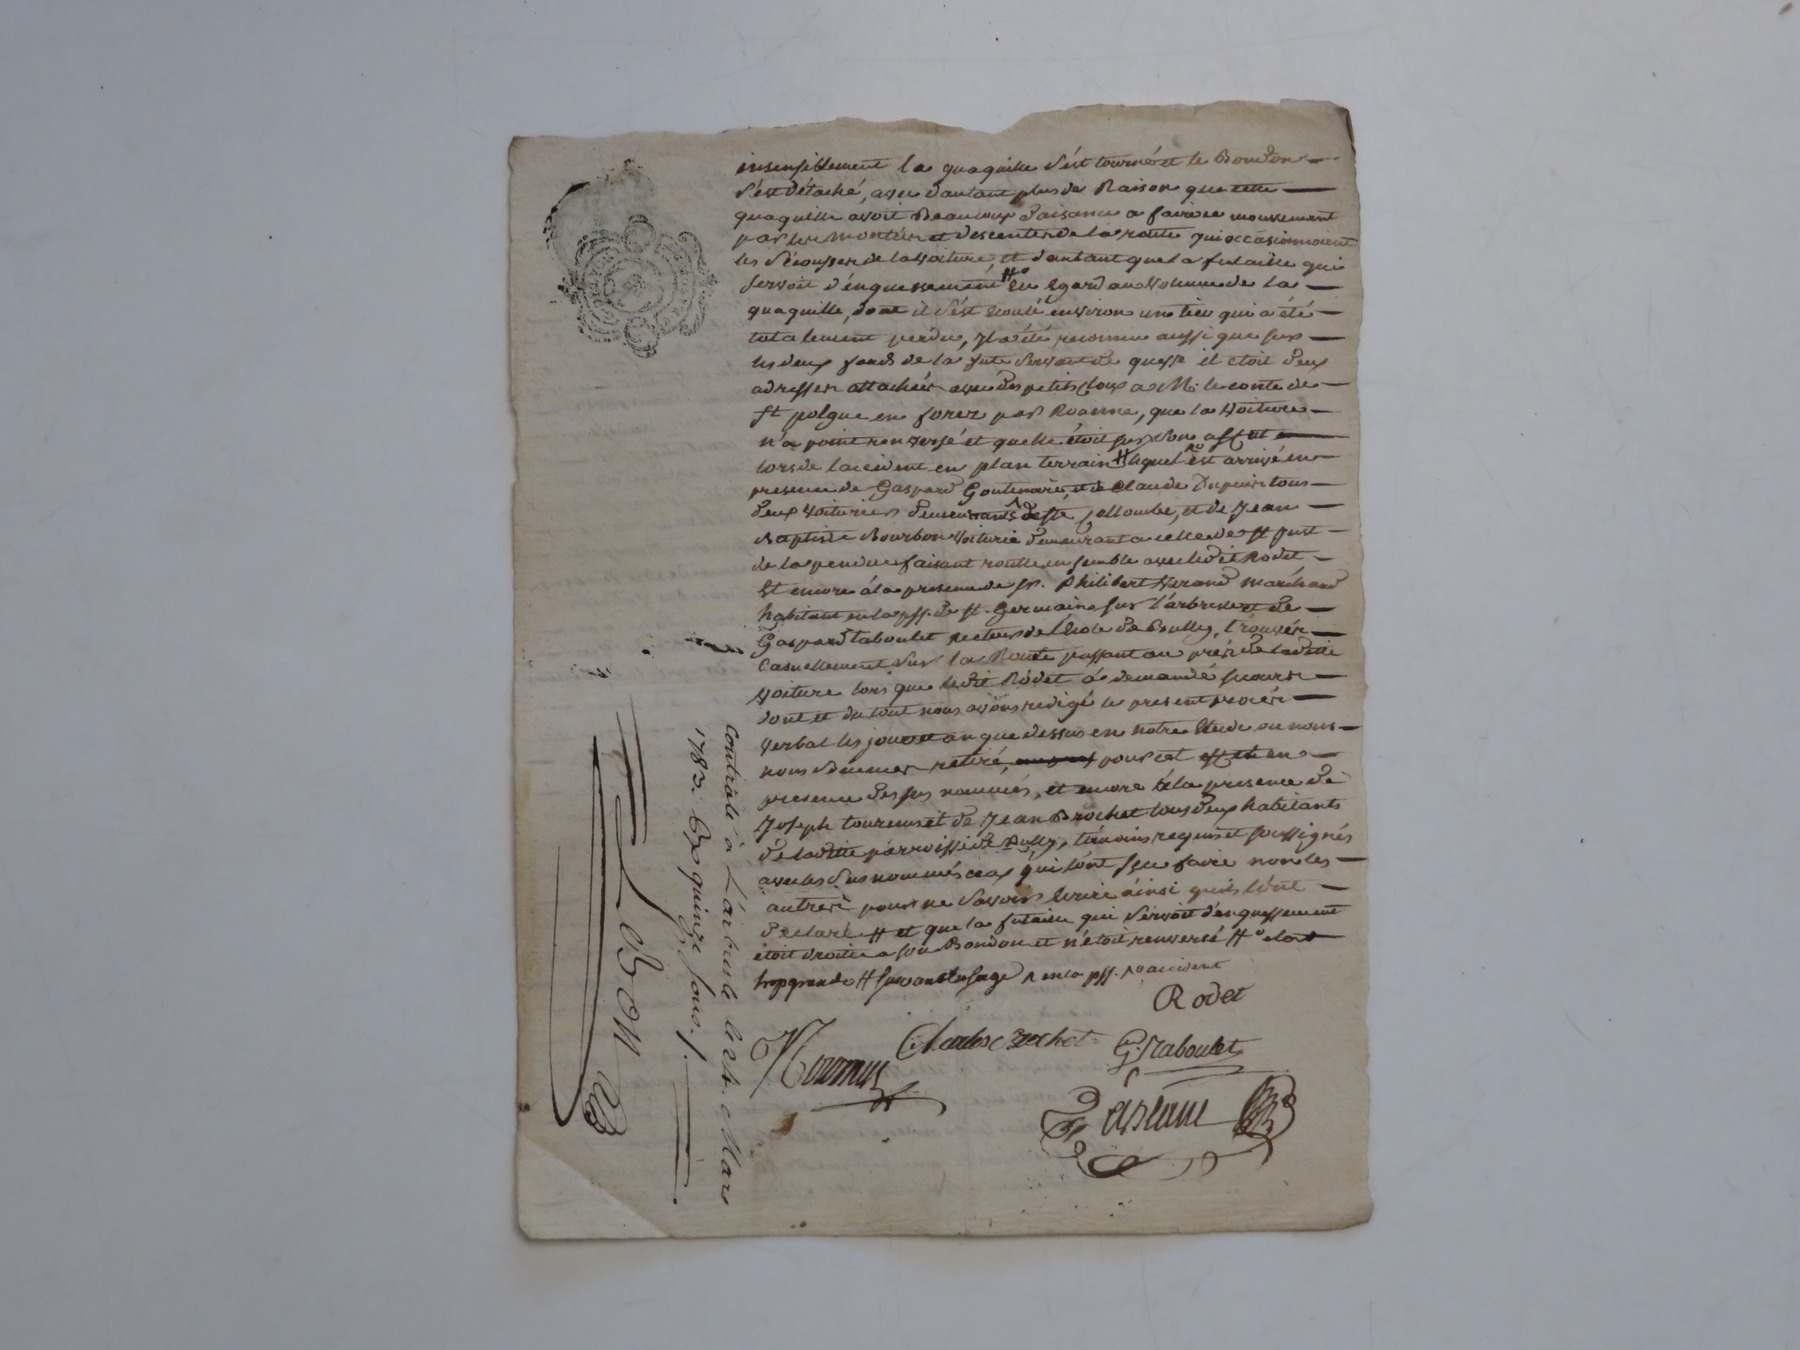 insensiblement la quaquille s'est tourné et le Bondon
s'est détaché, avec d'autant plus de Raison que cette
quaquille avoit Beaucoux d'aisance a faire ce mouvement
par les montées et descentes de la routte qui occasionnoient
les secousses de la voiture, et d'autant que la futaille qui
servoit d'enquessement Eu Egard au volume de la
quaquille, dont il s'est Ecoulé environ un tier qui a été
totalement perdu, Il a été reconnu aussi que sur
les deux fonds de la servant de quesse il etoit deux
adresses attachées avec des petits cloux a M. le conte de
st polgue en forez par Roanne, que la voiture
n'a point renversé et quelle étoit sur son
lors de laccident en plan terrain lequel est arrivé en
presence de Gaspard Goutenoire et de Claude Dupuis tous
deux voituriers demeurants de ste Collombe, et de Jean
Baptiste Bourbon voiturié demeurant a celle de st Just
de la pendue faisant routte ensemble avec ledit Rodet
Et encore à la presence de sr. Philibert marchand
habitant en la pss. de st. Germain sur l'arbresle et de
Gaspard taboulet recteur de l'Ecole de Bully, trouvés
Casuellement sur la Route passant au près de ladite
voiture lors que ledit Rodet a demandé secours
dont et du tout nous avons redigé le present procès
verbal les jour et an que dessus en notre Etude ou nous
nous sommes retiré, pour cet en
presence des sus nommés, et encore à la presence de
Joseph tournus et de Jean Brochet tous deux habitants
de ladite parroisse de Bully, témoins requis et soussignés
avec les sus nommés ceux qui l'ont sçu faire non les
autres pour ne savoir Ecrire ainsi quils l'ont
declaré # et que la futaille qui servoit d'enquessement
étoit droitte a son Bondon et n'étoit renversé #
trop grande # suivant l'usage en la pss. accident
Rodet
Tournus
Charles Brochet
G. Taboulet
Controlé à L'arbresle le 24. Mars
1783. Rx quinze sous.
LeBon